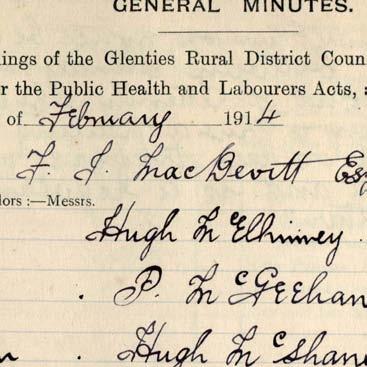 GENERAL MINUTES.
ings of the Glenties Rural District Coun
r the Public Health and Labourers Acts,
of February 1914
F. J. MacDevitt Esq
lors :—Messrs.
Hugh McElhinney
P. McGeehan
Hugh McShane